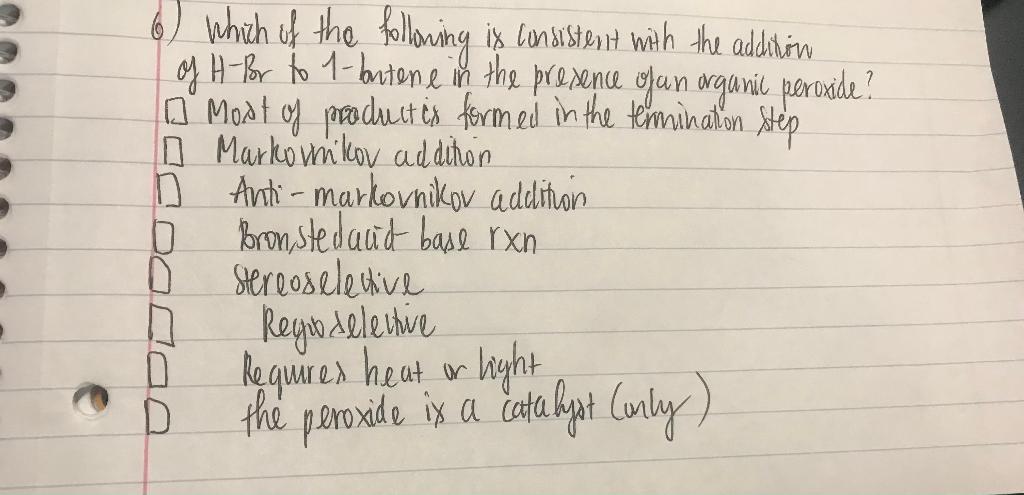 6) Which of the following is consistent with the addition
of H-Br to 1-butene in the presence of an organic peroxide?
□ Most of product is formed in the termination step
□ Markovnikov addition
□ Anti-markovnikov addition
□ Bronsted acid-base rxn
□ stereoselective
□ Regioselective
□ Requires heat or light
□ the peroxide is a catalyst (only)